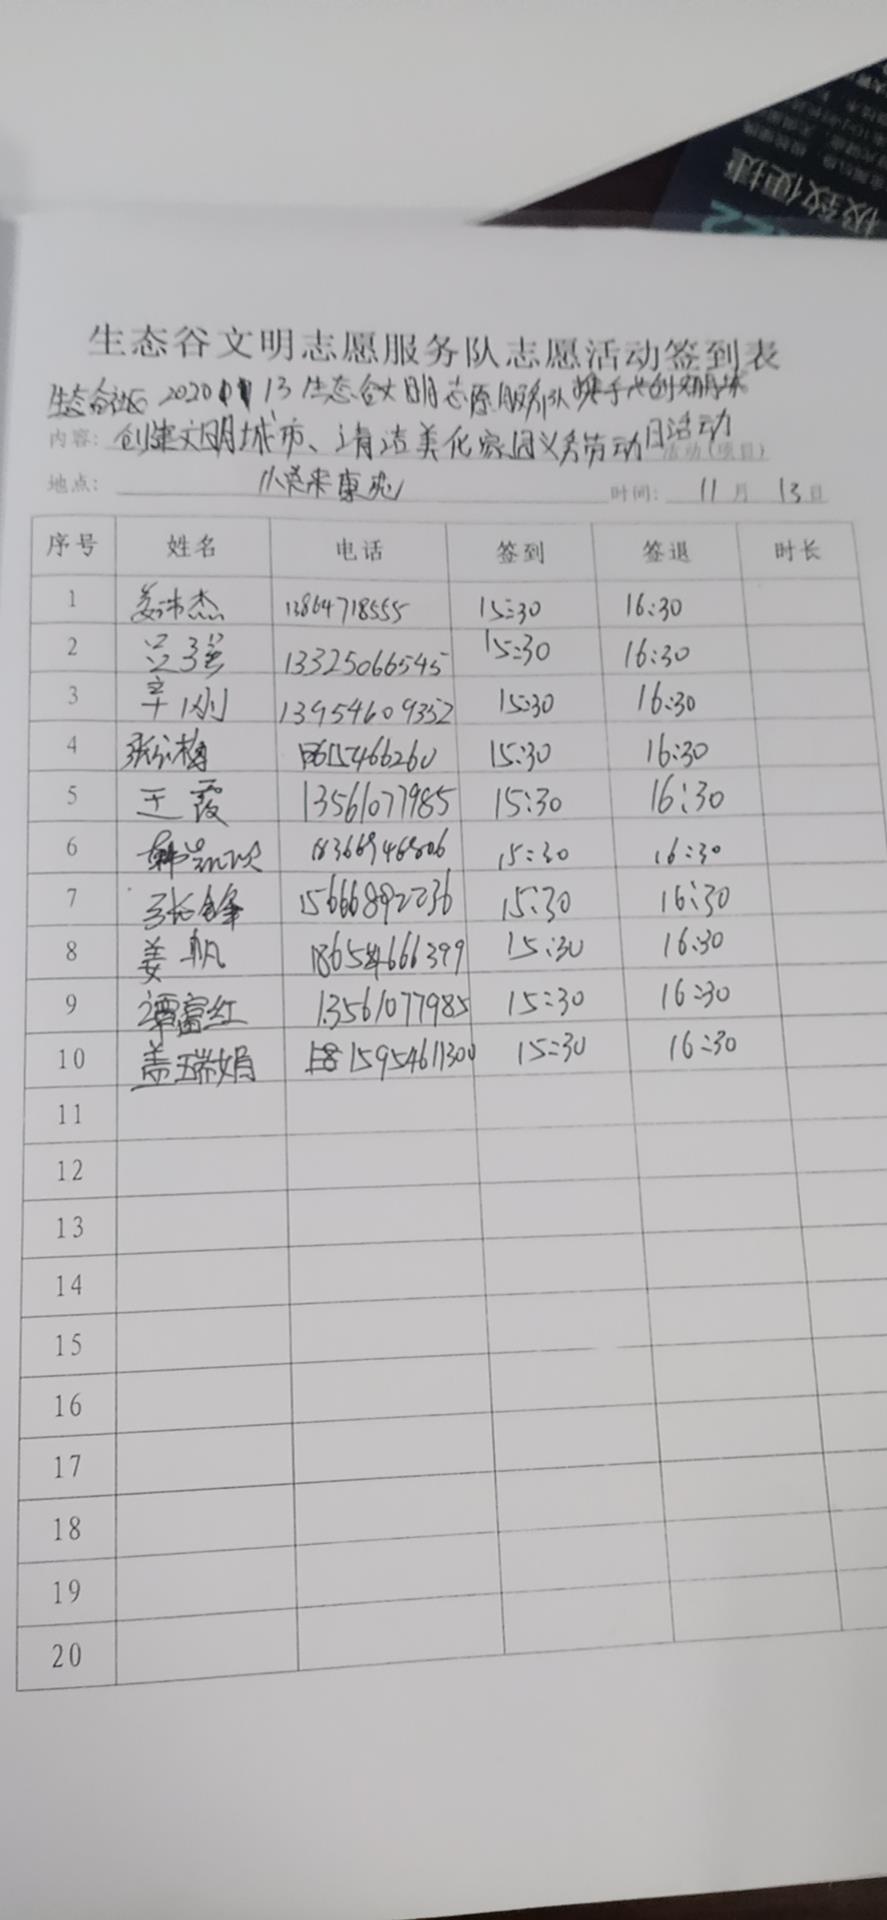 极致便捷
生态谷文明志愿服务队志愿活动签到表
生态谷社区 2020 11 13 生态谷文明志愿服务队携手共创文明城
内容: 创建文明城市、清洁美化家园义务劳动日活动 活动(项目)
地点: 康苑 时间: 11 月 13 日
序号 姓名 电话 签到 签退 时长
1 姜沛杰 13864718555 15:30 16:30
2 吕强 13325066545 15:30 16:30
3 辛刚 13954609352 15:30 16:30
4 梅 15:30 16:30
5 王霞 13561077985 15:30 16:30
6 韩 18366946806 15:30 16:30
7 张锋 15666892236 15:30 16:30
8 姜帆 18654666399 15:30 16:30
9 谭富红 13561077985 15:30 16:30
10 盖瑞娟 15954611300 15:30 16:30
11
12
13
14
15
16
17
18
19
20